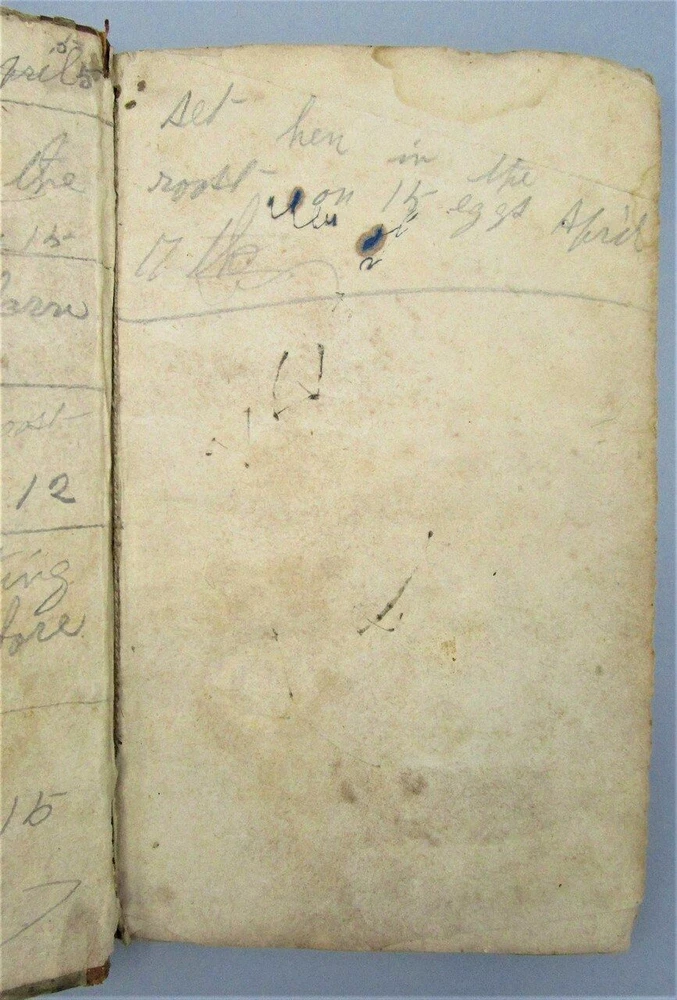 April 5
the
15
Barn
roost
12
ting
fore
15
set hen in the
roost on 15 eggs April
17 th